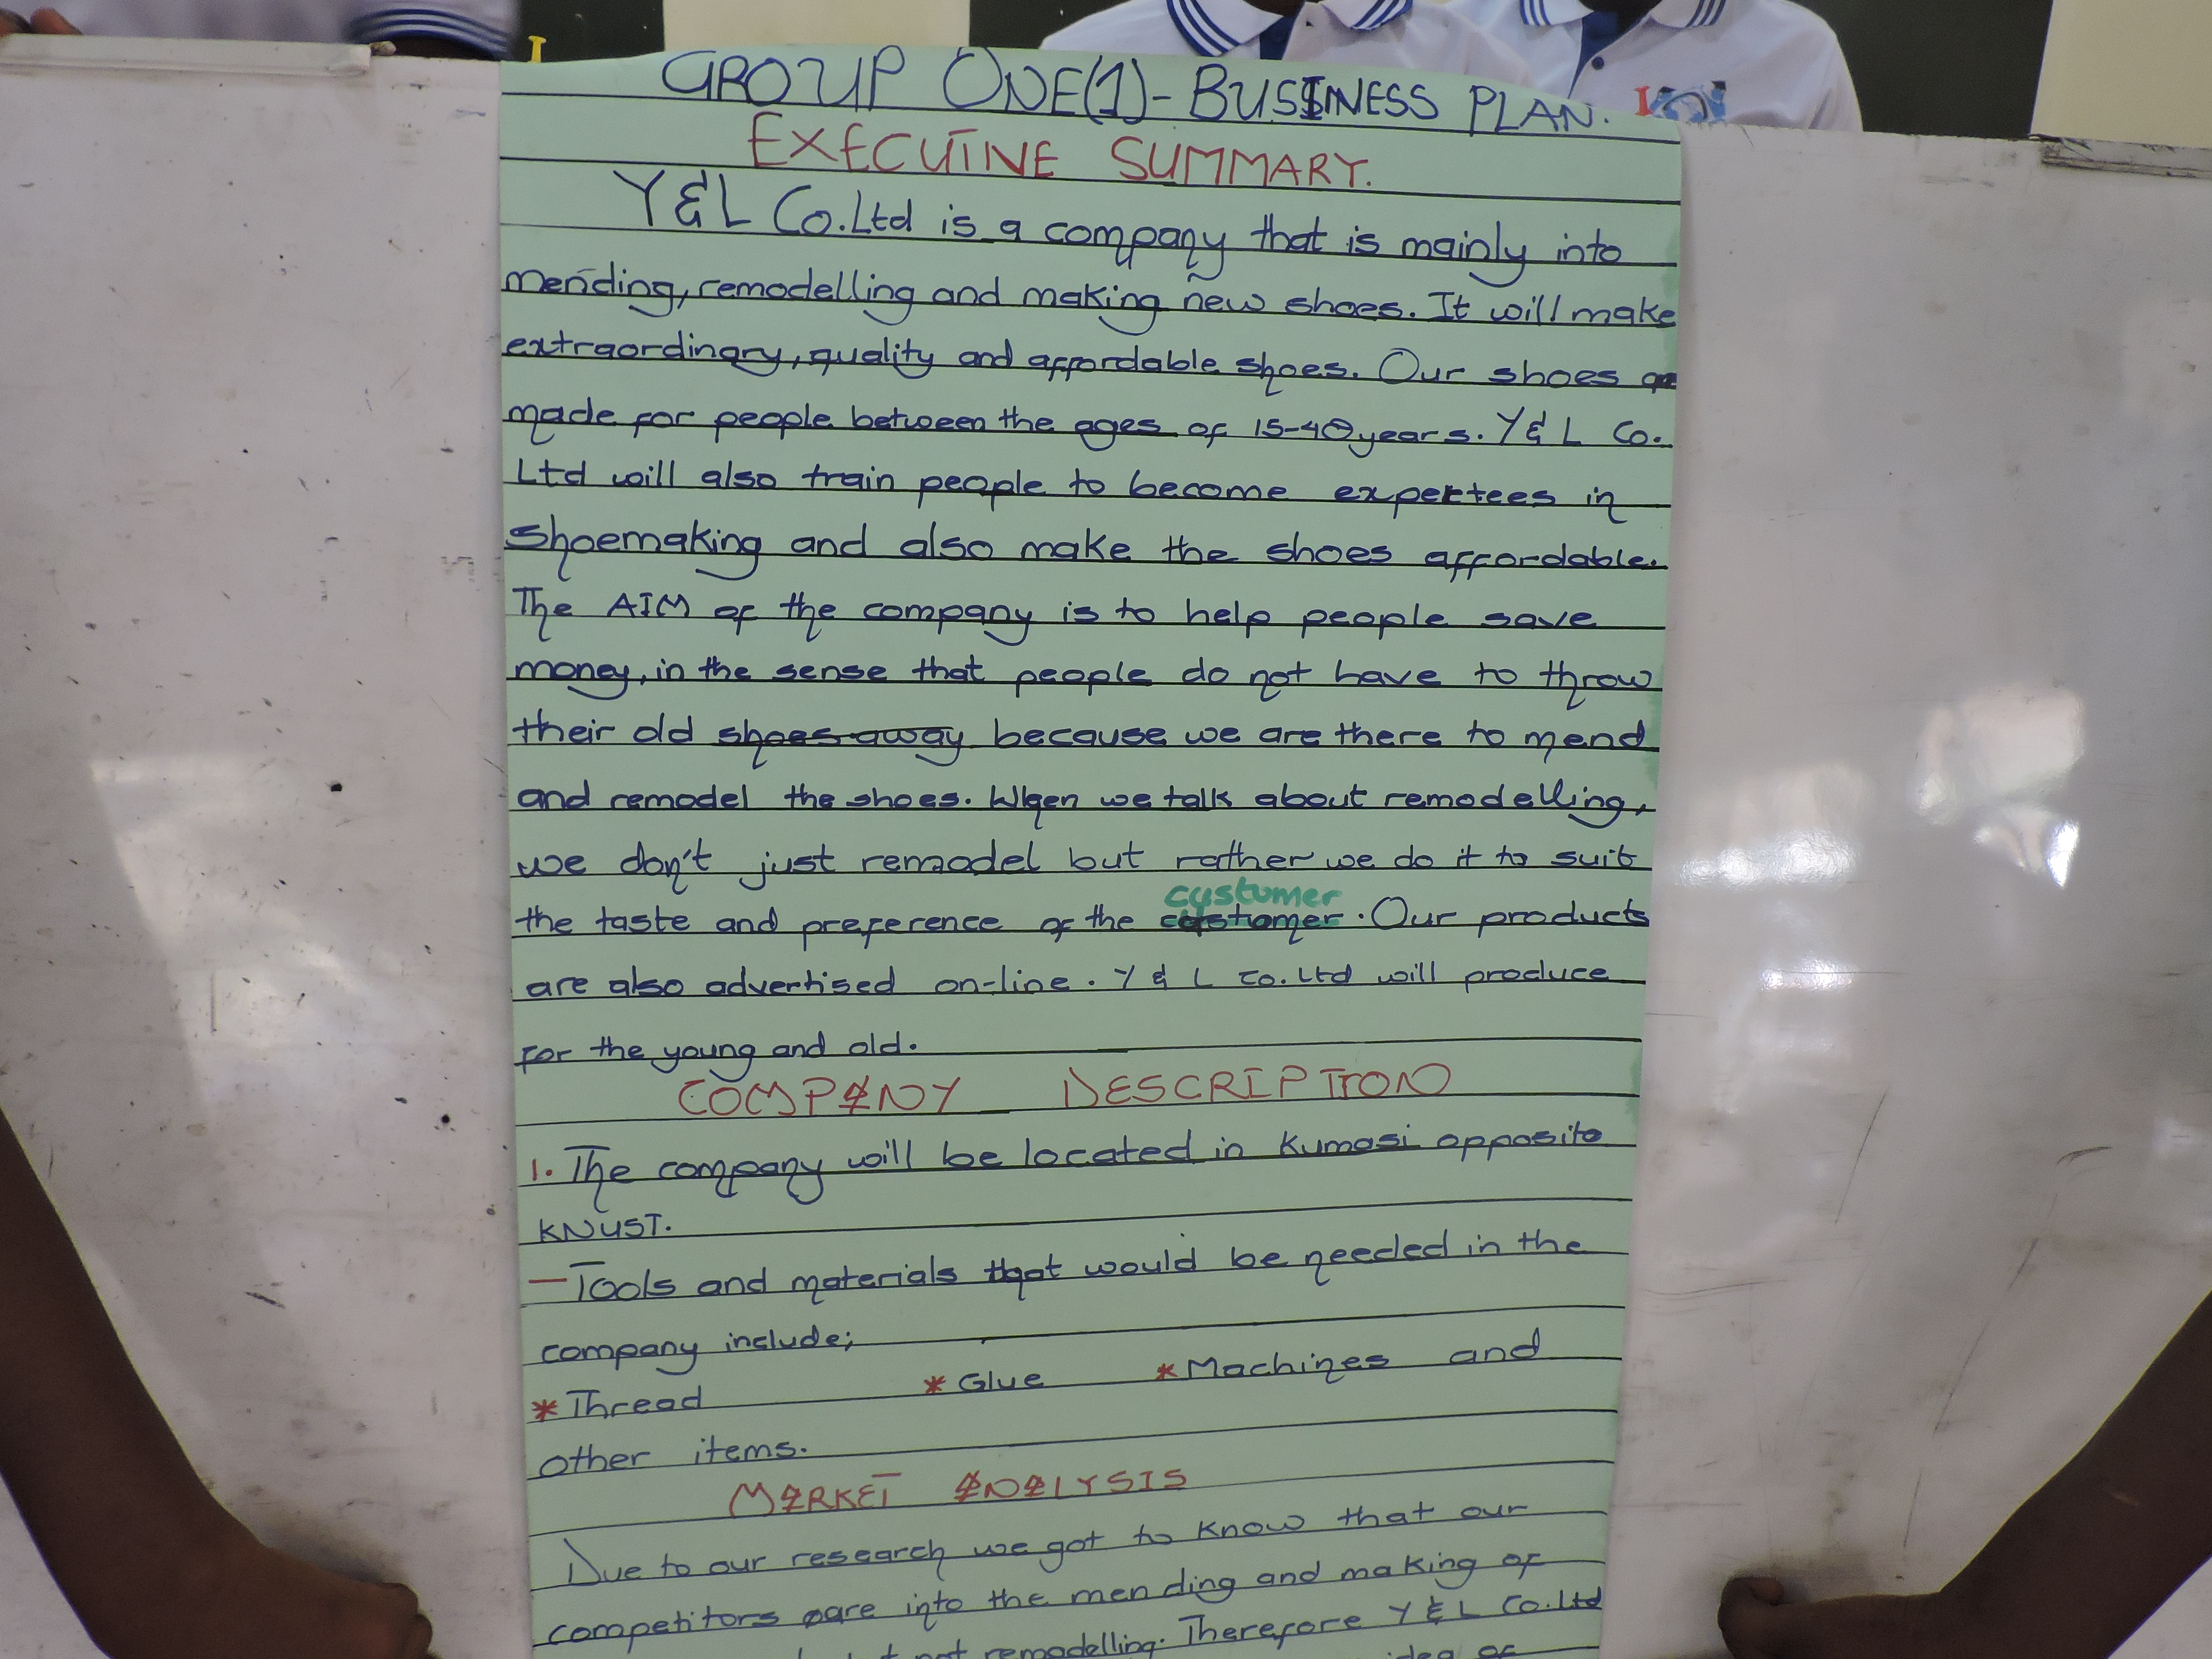 GROUP ONE(1)- BUSINESS PLAN.
EXECUTINE SUMMARY.
Y&L Co.Ltd is a company that is mainly into
mending, remodelling and making new shoes. It will make
extraordinary, quality and affordable shoes. Our shoes
made for people between the ages of 15-40years. Y& L Co.
Ltd will also train people to become expertees in
shoemaking and also make the shoes affordable.
The AIM of the company is to help people save
money, in the sense that people do not have to throw
their old shoes away because we are there to mend
and remodel the shoes. When we talk about remodelling,
we don't just remodel but rather we do it to suit
customer
the taste and preference of the customer. Our products
are also advertised on-line. Y & L co. Ltd will produce
for the young and old.
COMPANY DESCRIPTION
1. The company will be located in Kumasi opposite
KNUST.
-Tools and materials that would be needed in the
company include;
* Thread * Glue * Machines and
other items.
MARKET ANALYSIS
Due to our research we got to know that our
competitors are into the mending and making of
not remodelling. Therefore Y & L Co.Ltd
idea of